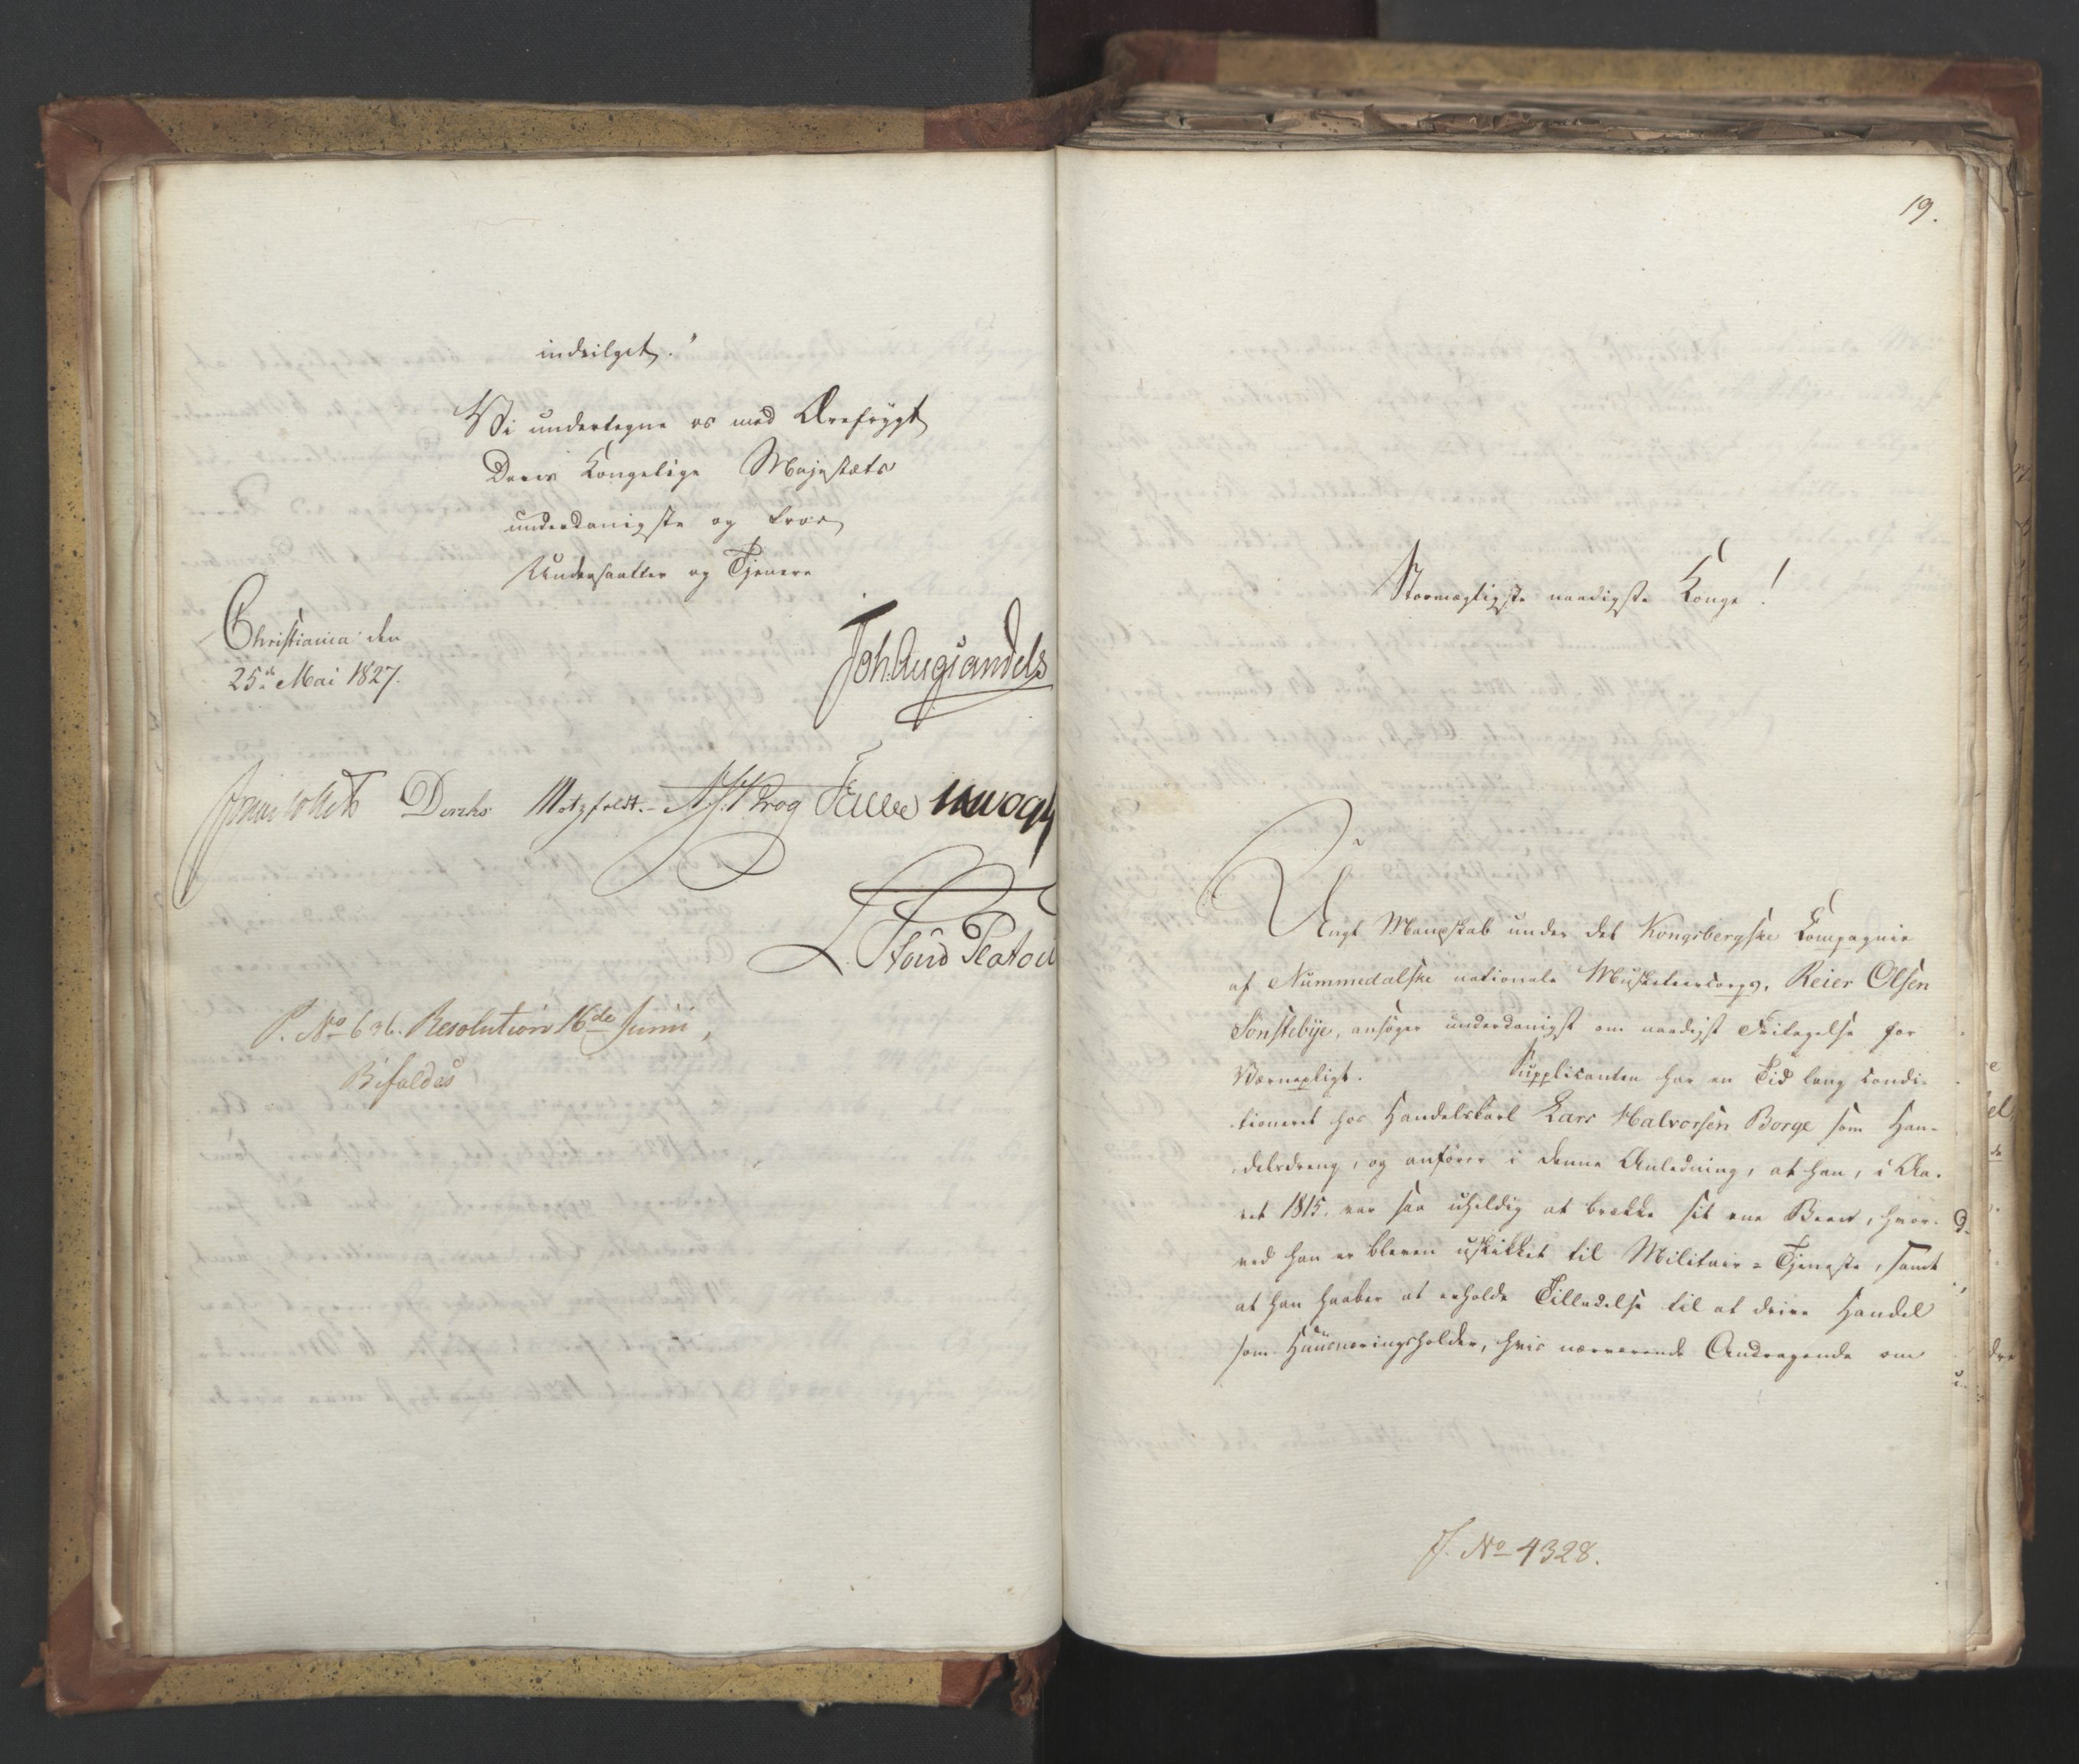 indvilget."
Vi undertegne os med Ærefrygt
Deres Kongelige Majestæts
underdanigste og troe
Undersaatter og Tjenere
Christiania den
25de Mai 1827.
Joh. Aug. Sandels
Jonas Collett Diriks Motzfeldt. A. S. Krog Treschow
P. No 636. Resolution 16de Junii,
Bifaldes
19.
Stormægtigste naadigste Konge!
Ungt Mandskab under det Kongsbergske Compagnie
af Nummedalske nationale Musketeercorps, Reier Olsen
Sønstebye, ansøger underdanigst om naadigst Fritagelse for
Værnepligt. Supplicanten har en Tid lang condi-
tioneret hos Handelskarl Lars Halvorsen Borge som Han-
delsdreng, og anfører i denne Anledning, at han, i Aa-
ret 1815. var saa uheldig at brække sit ene Been, hvor-
ved han er bleven uskikket til Militair-Tjeneste, samt
at han haaber at erholde Tilladelse til at drive Handel
som Huusnæringsholder, hvis nærværende Andragende om
J. No 4328.